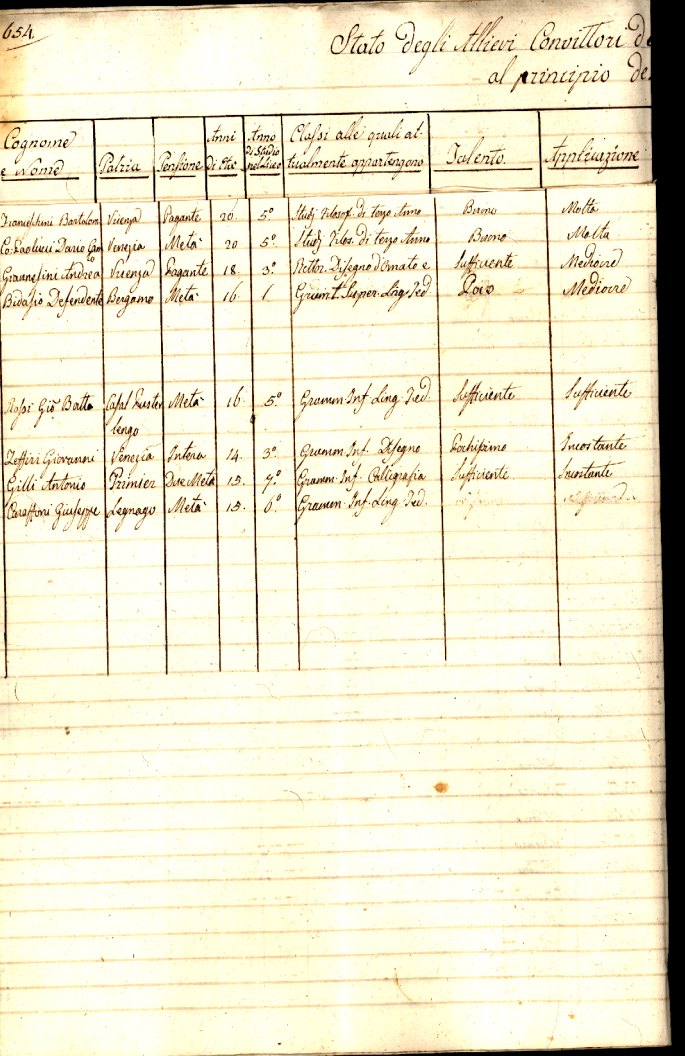 654.
Stato degli Allievi Convittori
al principio
Cognome e Nome Patria Pensione Anni di Età Anno di Studio nel Liceo Classi alle quali attualmente appartengono Talento. Applicazione
Franceschini Bartolom Vicenza Pagante 20. 5.° Studj Filosof. di terzo Anno Buono Molta
Co: Paolucci Dario Venezia Metà 20 5.° Studj Filos. di terzo Anno Buono Molta
Andrea Vicenza Pagante 18. 3.° Rettor. Disegno d'Ornato e Sufficiente Mediocre
Bidasio Defendente Bergamo Metà 16. 1 Gramt. Super. Ling. Ted Poco Mediocre
Rossi Gio Batta Casal Puster Metà 16. 5.° Gramm. Inf. Ling. Ted. Sufficiente Sufficiente
lengo
Zeffiri Giovanni Venezia Intera 14. 3.° Gramm. Inf. Disegno Pochissimo Incostante
Gilli Antonio Primier Due Metà 15. 7.° Gramm. Inf. Calligrafia Sufficiente Incostante
Giuseppe Legnago Metà 15. 6.° Gramm. Inf. Ling. Ted.